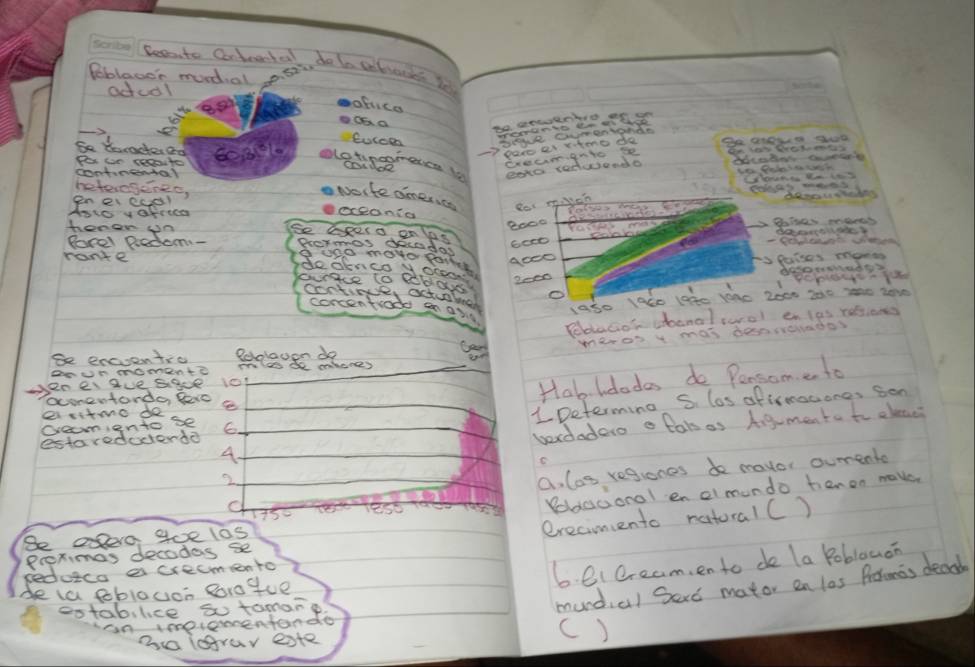 Scribe
Reparto Continental de la población
Población mundial
actual
60,3%
8,5
africa
asia
Europa
Latinoamerica
caribe
Norte america
oceania
Se caracteriza
Por un reparto
continental
heterogéneo,
en el cual,
Asia y africa
tienen un
Parel Predomi-
nante
Se espera en las
Proxmas decadas
de africa y oceania
aunque la Población
continue actualmente
concentrada en asia
Se encuentra
en un momento
en el que sigue
aumentando, Pero
el ritmo de
crecimiento se
esta reduciendo
Población de
miles de millones
10
8
6
4
2
0
1750 1800 1850 1900 1950
Se espera que las
Proximas decadas se
reduzca el crecimiento
de la Población Para que
estabilice su tamaño
implementando
lograr este
Se encuentra en un
momento en el que
sigue aumentando
pero el ritmo de
crecimiento se
esta reduciendo
Se espera que
en las Proximas
decadas aumente
la Población
urbana en los
Paises menos
desarrollados
8000
6000
4000
2000
0
1950 1960 1970 1980 2000 2010
Paises menos
desarrollados
Población urbana
Paises menos
desarrollados
Población rural
Población urbana/rural en las regiones
menos y más desarrollados
Habilidades de Pensamiento
1. Determina si las afirmaciones son
verdadero o falsas Argumenta tu elección
a. Las regiones de mayor aumento
Poblacional en el mundo tienen mayor
crecimiento natural ( )
b. El crecimiento de la Población
mundial Será mayor en las Proximas decadas
( )